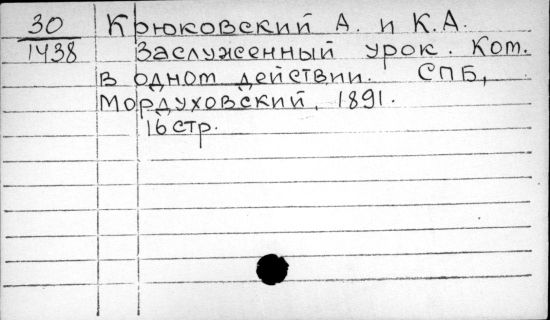 30 Крюковский А. и К.А.
1438 Заслуженный урок. Ком.
в одном действии. СПБ,
Мордуховский, 1891.
16 стр.